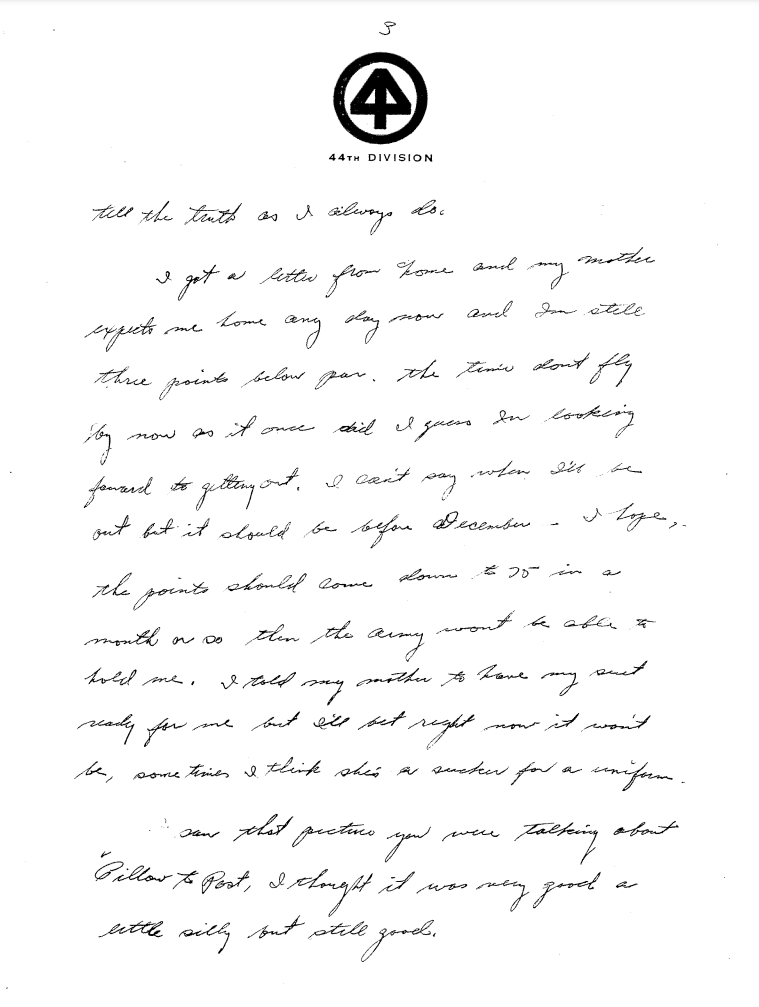 3
44TH DIVISION
tell the truth as I always do.
I got a letter from home and my mother
expects me home any day now and Im still
three points below par. the time dont fly
by now as it once did I guess Im looking
forward to getting out. I can't say when I'll be
out but it should be before December - I hope,
the points should come down to 75 in a
month or so then the army wont be able to
hold me. I told my mother to have my suit
ready for me but I'll bet right now it won't
be, sometimes I think she's a sucker for a uniform.
saw that picture you were talking about
"Pillow to Post, I thought it was very good a
little silly but still good.